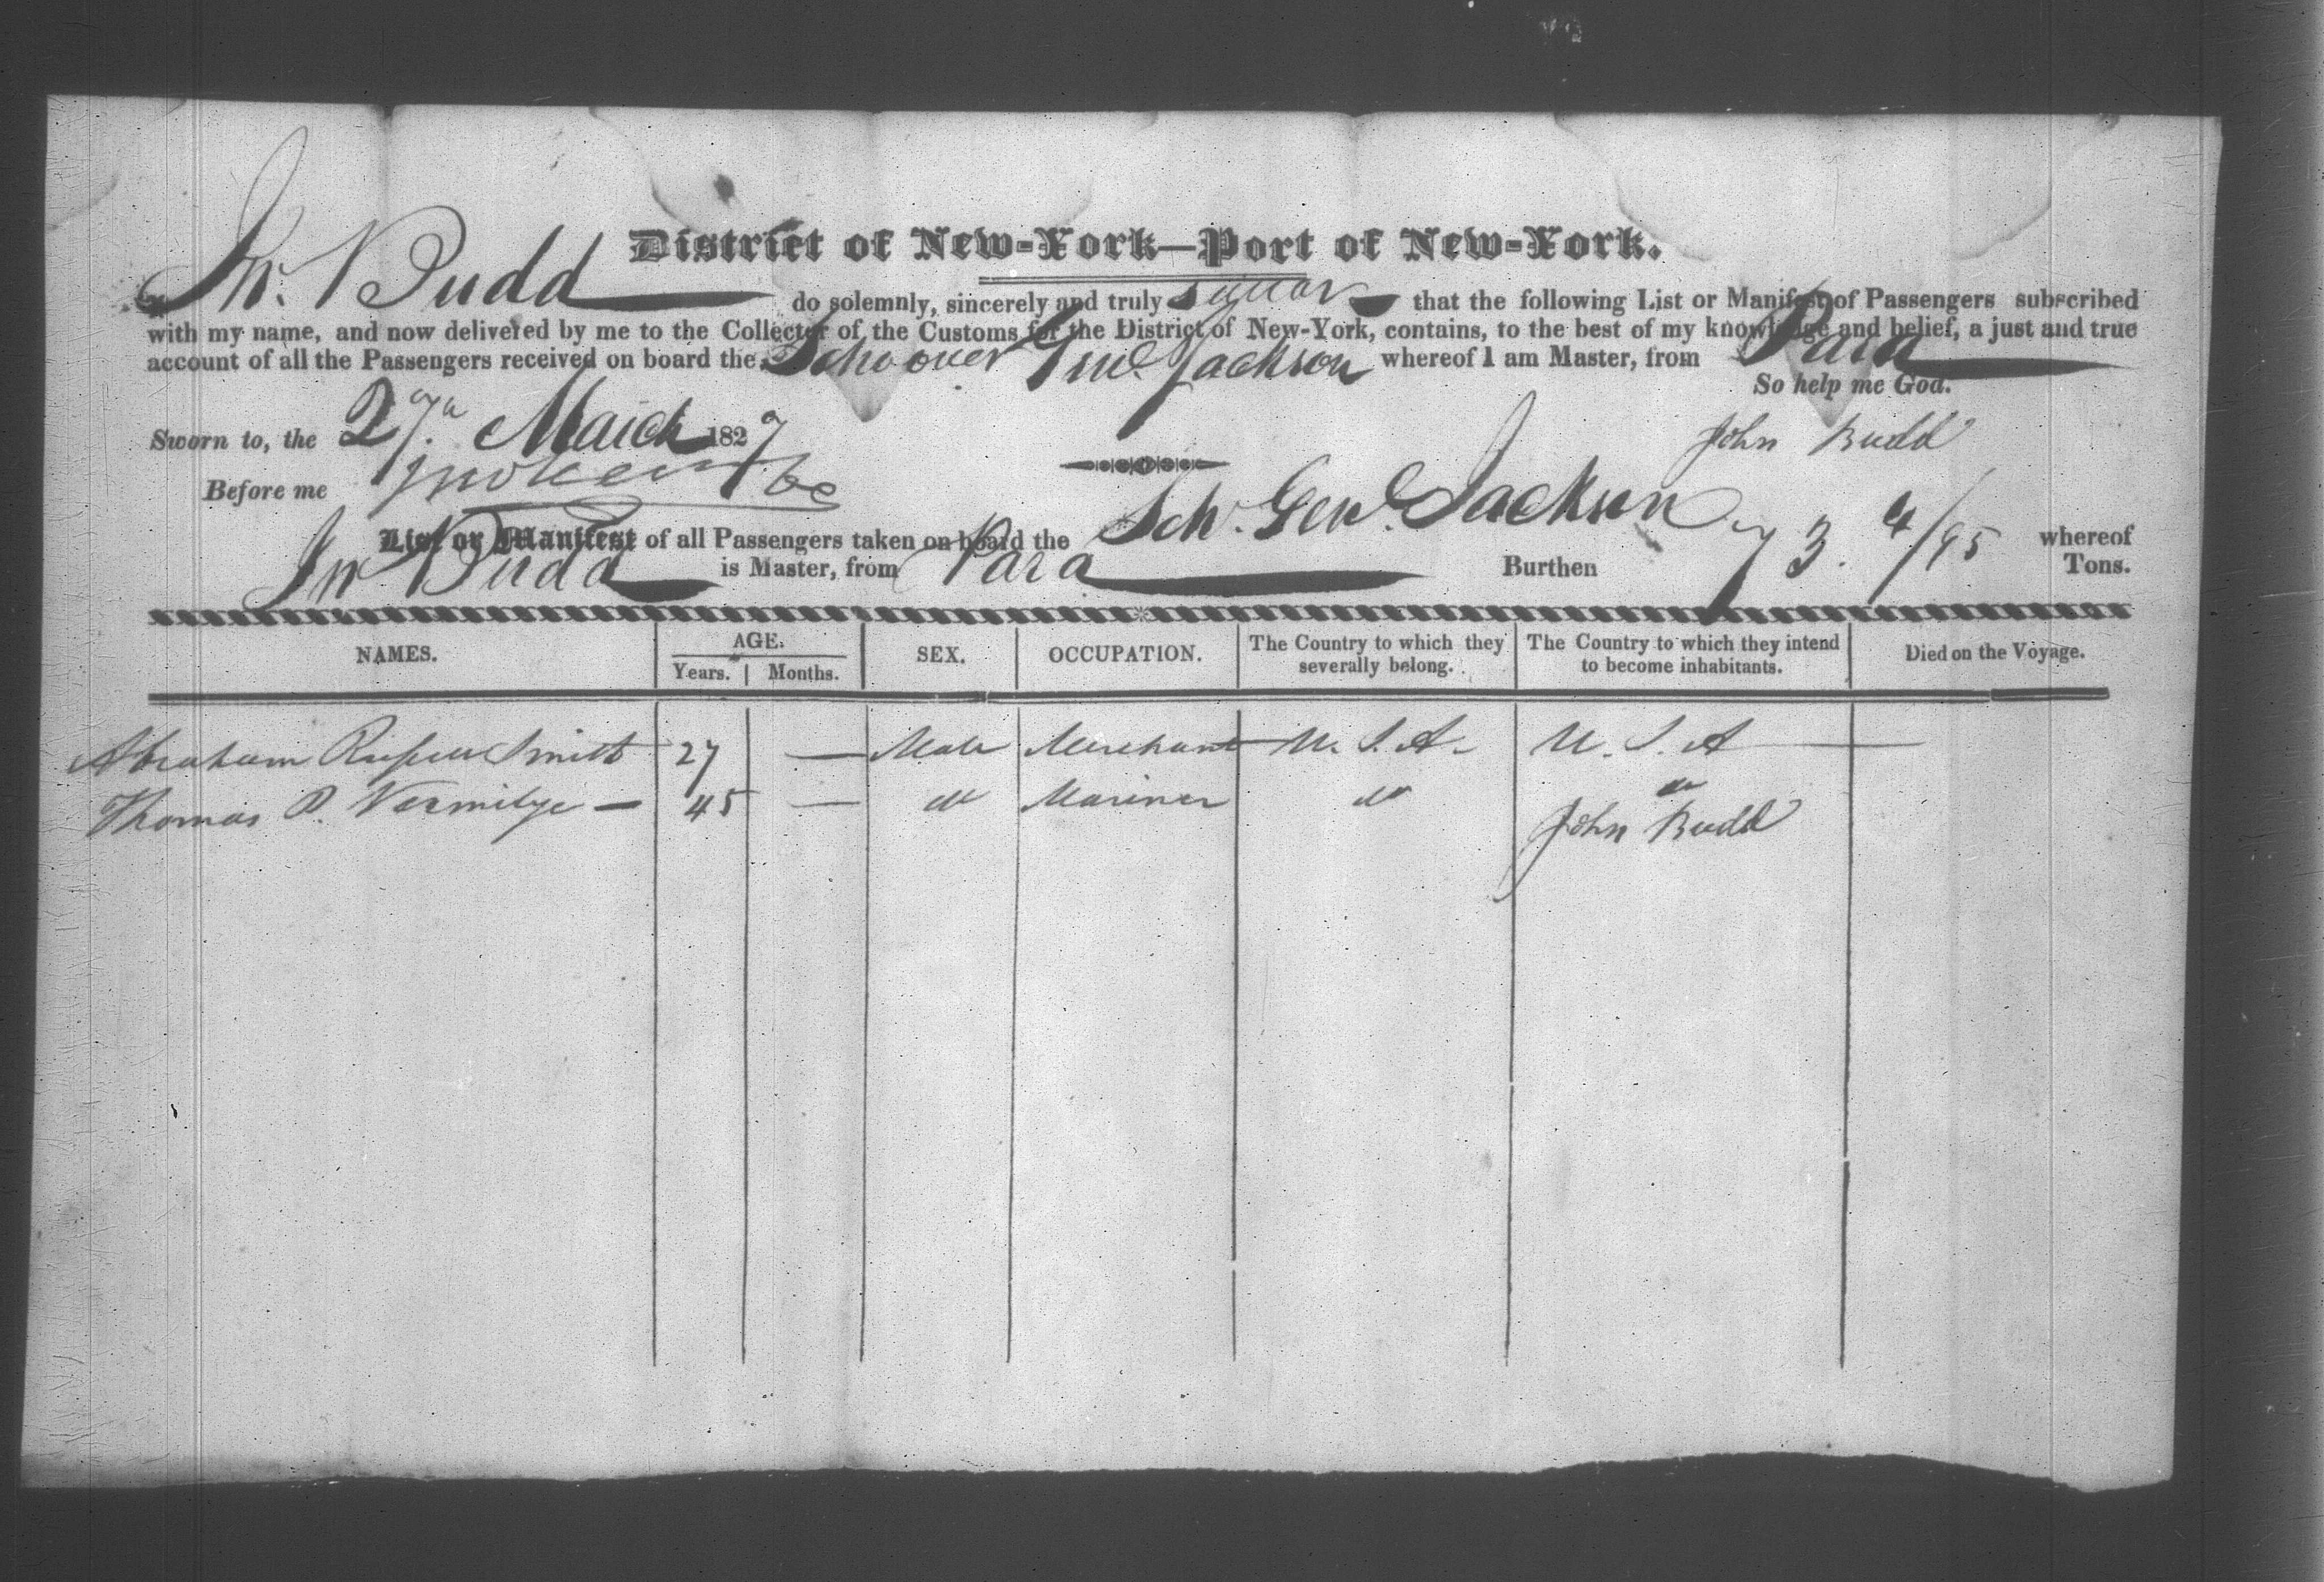 District of New-York—Port of New-York.
I Jno. Budd do solemnly, sincerely and truly swear that the following List or Manifest of Passengers subscribed
with my name, and now delivered by me to the Collector of the Customs for the District of New-York, contains, to the best of my knowledge and belief, a just and true
account of all the Passengers received on board the Schooner Genl. Jackson whereof I am Master, from Para
So help me God.
Sworn to, the 27th. March 1827
John Budd
Before me
List or Manifest of all Passengers taken on board the Sch. Genl. Jackson whereof
Jno Budd is Master, from Para Burthen 73. 4/95 Tons.
NAMES. AGE. SEX. OCCUPATION. The Country to which they severally belong. The Country to which they intend to become inhabitants. Died on the Voyage.
Years. Months.
Abraham Russell Smith 27 — Male Merchant U. S. A. U. S. A —
Thomas D. Vermilye — 45 — do Mariner do do
John Budd